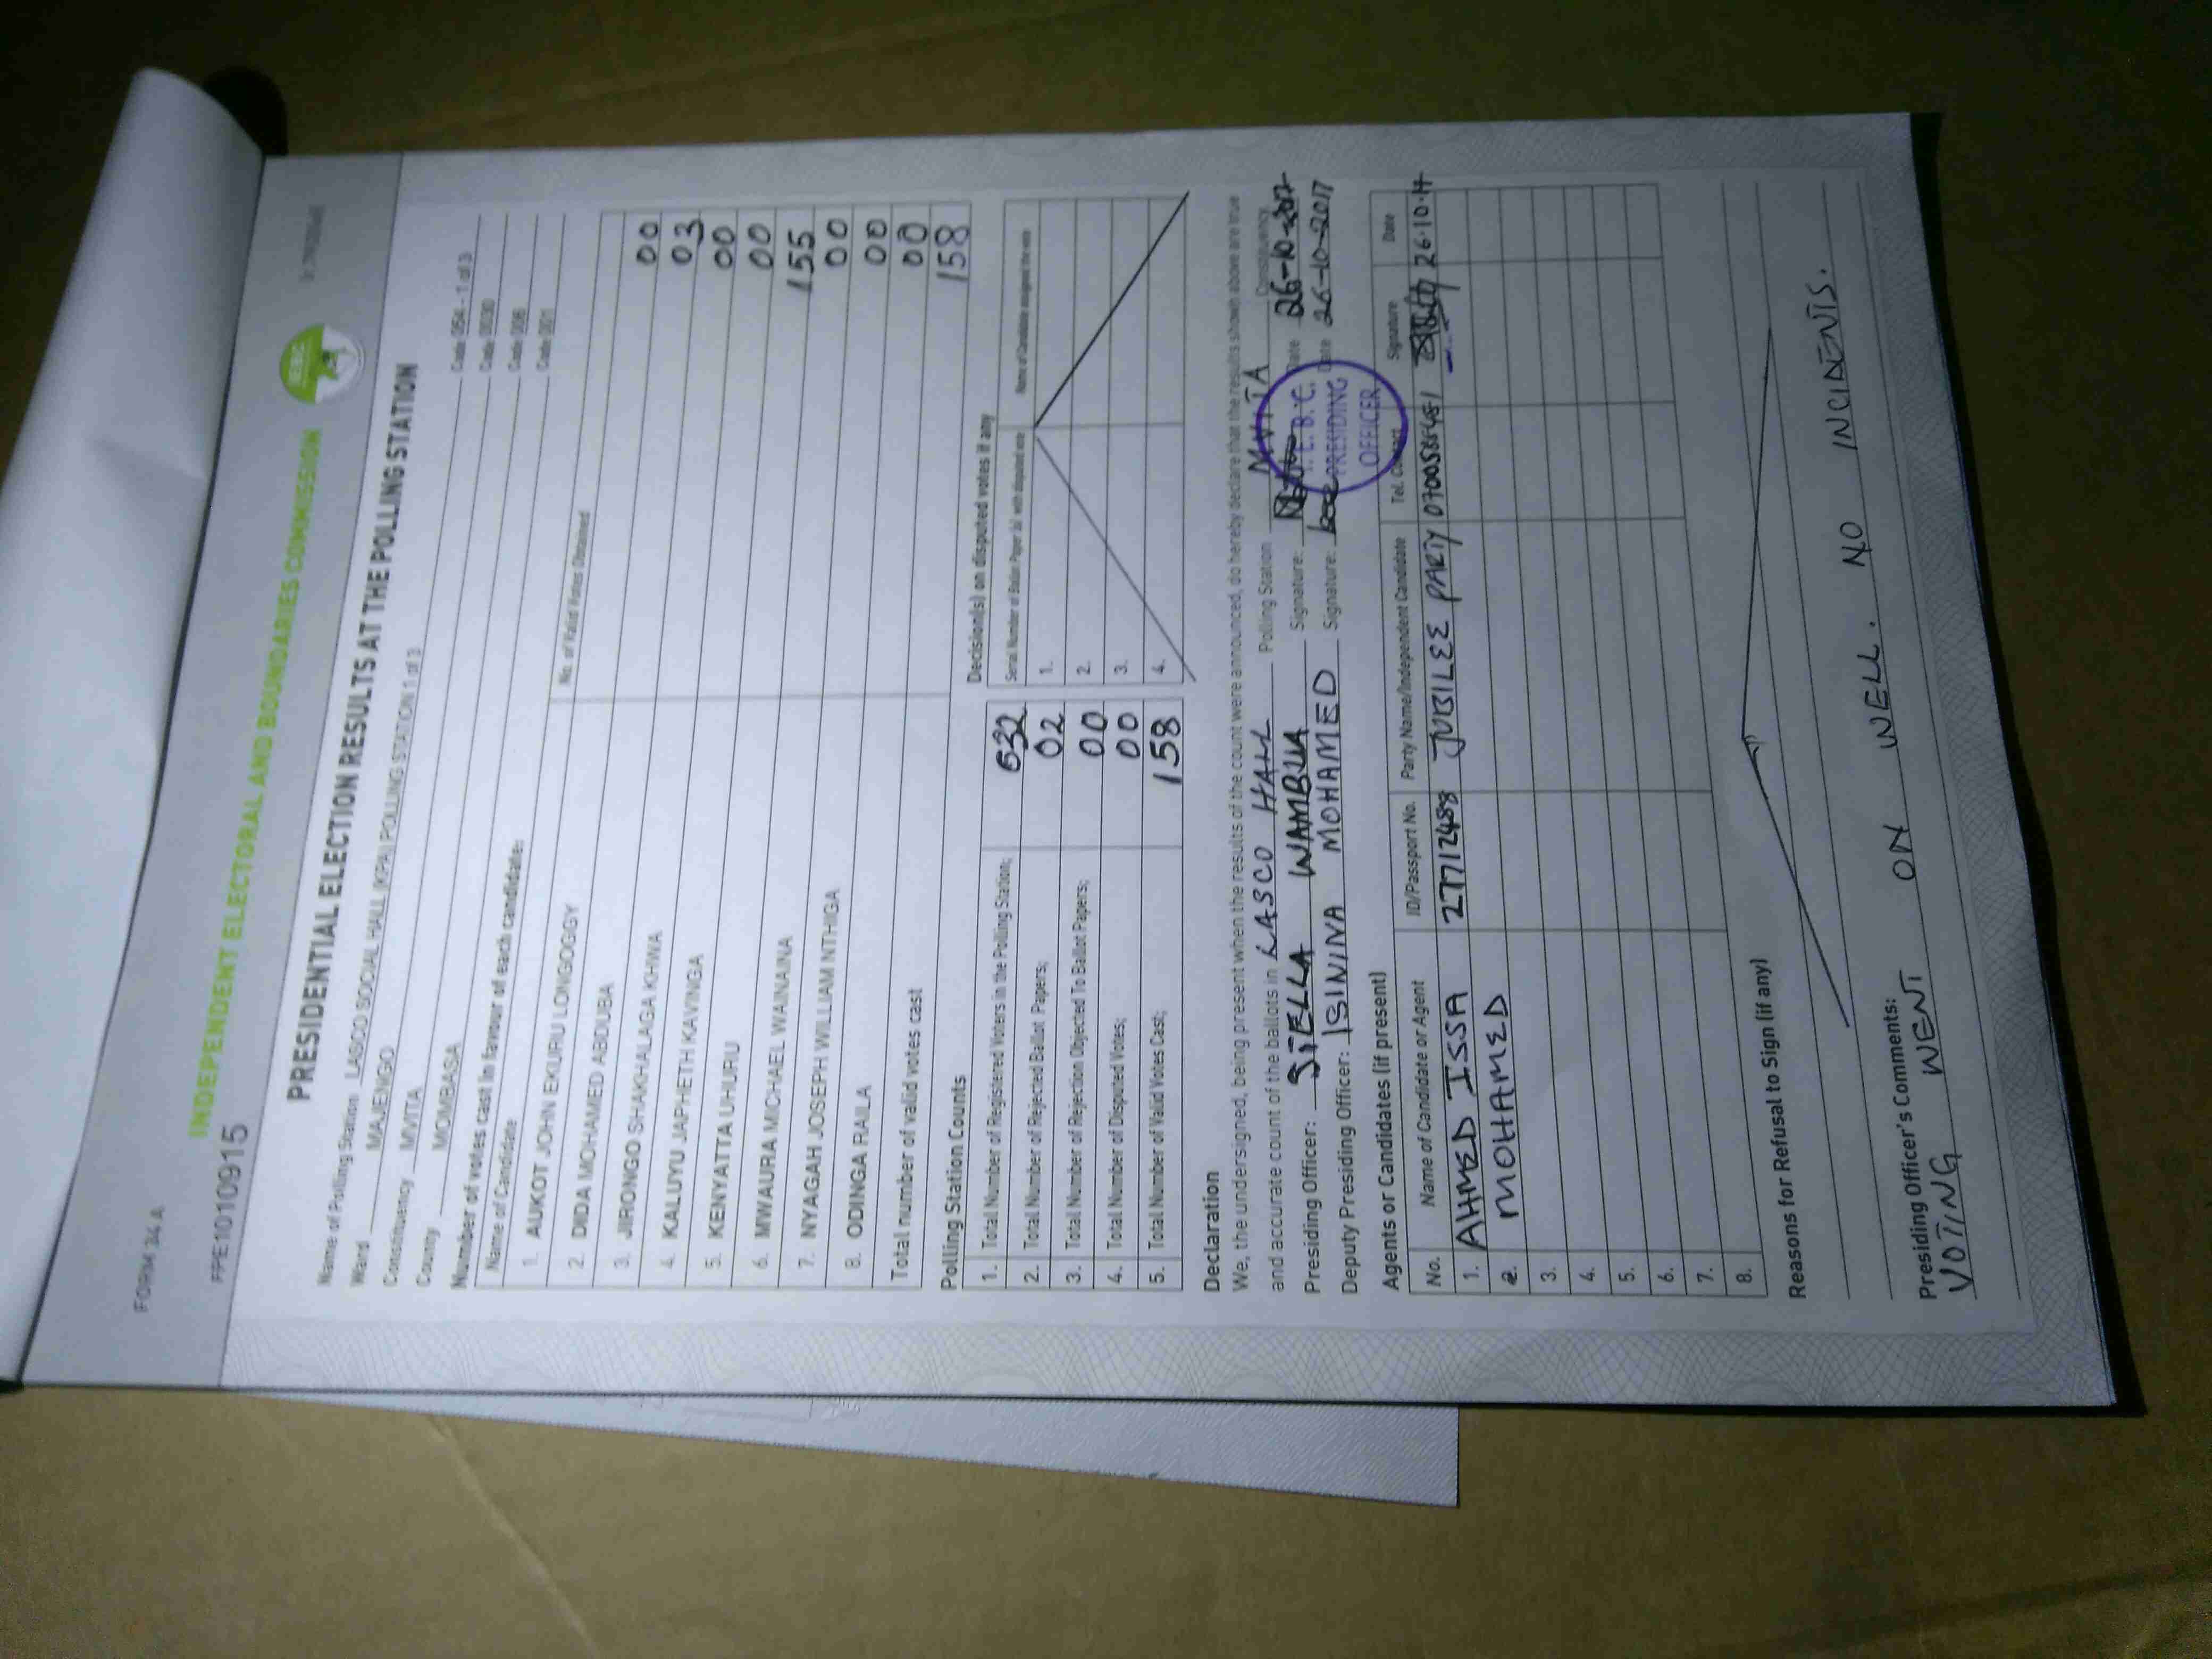 FORM 34 A
INDEPENDENT ELECTORAL AND BOUNDARIES COMMISSION
PPE1010915
PRESIDENTIAL ELECTION RESULTS AT THE POLLING STATION
Name of Polling Station LASCO SOCIAL HALL (KPA) POLLING STATION 1 of 3 Code 054 - 1 of 3
Ward MAJENGO Code 0030
Constituency MVITA Code 006
County MOMBASA Code 001
Number of votes cast in favour of each candidate:
Name of Candidate No. of Valid Votes Obtained
1. AUKOT JOHN EKURU LONGOGGY 00
2. DIDA MOHAMED ABDUBA 03
3. JIRONGO SHAKHALAGA KHWA 00
4. KALUYU JAPHETH KAVINGA 00
5. KENYATTA UHURU 155
6. MWAURA MICHAEL WAINAINA 00
7. NYAGAH JOSEPH WILLIAM NTHIGA 00
8. ODINGA RAILA 00
Total number of valid votes cast 158
Polling Station Counts
1. Total Number of Registered Voters in the Polling Station; 632
2. Total Number of Rejected Ballot Papers; 02
3. Total Number of Rejection Objected To Ballot Papers; 00
4. Total Number of Disputed Votes; 00
5. Total Number of Valid Votes Cast; 158
Decision(s) on disputed votes if any
Serial Number of Ballot Paper (s) with disputed vote Name of Candidate assigned the vote
1.
2.
3.
4.
Declaration
We, the undersigned, being present when the results of the count were announced, do hereby declare that the results shown above are true
and accurate count of the ballots in LASCO HALL Polling Station MVITA Constituency
Presiding Officer: STELLA WAMBUA Signature: Date 26-10-2017
Deputy Presiding Officer: ISININA MOHAMED Signature: Date 26-10-2017
I.E.B.C.
PRESIDING
OFFICER
Agents or Candidates (if present)
No. Name of Candidate or Agent ID/Passport No. Party Name/Independent Candidate Tel. Contact Signature Date
1. AHMED ISSA 27712488 JUBILEE PARTY 26.10.17
2. MOHAMED
3.
4.
5.
6.
7.
8.
Reasons for Refusal to Sign (if any)
Presiding Officer's Comments:
VOTING WENT ON WELL. NO INCIDENTS.